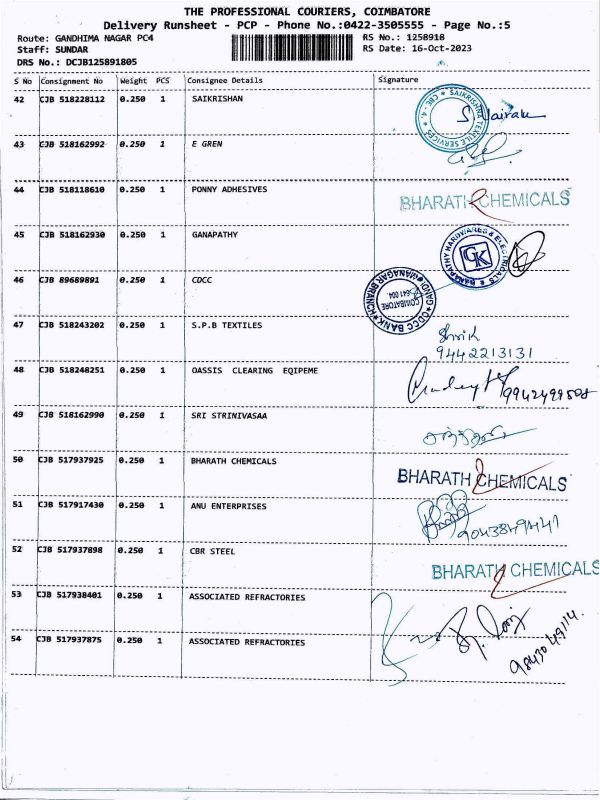 THE PROFESSIONAL COURIERS, COIMBATORE
Delivery Runsheet - PCP - Phone No.:0422-3505555 - Page No.:5
Route: GANDHIMA NAGAR PC4 RS No.: 1258918
Staff: SUNDAR RS Date: 16-Oct-2023
DRS No.: DCJB125891805
S No Consignment No Weight PCS Consignee Details Signature
42 CJB 518228112 0.250 1 SAIKRISHAN
SAIKRISHNA TEXTILE SERVICES ★ CBE - 4. ★
43 CJB 518162992 0.250 1 E GREN
44 CJB 518118610 0.250 1 PONNY ADHESIVES BHARATH CHEMICALS
45 CJB 518162930 0.250 1 GANAPATHY
GANAPATHY HARDWARES & ELECTRICALS ★ GK
46 CJB 89689891 0.250 1 CDCC
CDCC BANK ★ GANDHIMANAGAR BRANCH ★ COIMBATORE 641 004.
47 CJB 518243202 0.250 1 S.P.B TEXTILES
9442213131
48 CJB 518248251 0.250 1 OASSIS CLEARING EQIPEME 9942499508
49 CJB 518162990 0.250 1 SRI STRINIVASAA
50 CJB 517937925 0.250 1 BHARATH CHEMICALS BHARATH CHEMICALS
51 CJB 517917430 0.250 1 ANU ENTERPRISES
52 CJB 517937898 0.250 1 CBR STEEL BHARATH CHEMICALS
53 CJB 517938401 0.250 1 ASSOCIATED REFRACTORIES
54 CJB 517937875 0.250 1 ASSOCIATED REFRACTORIES